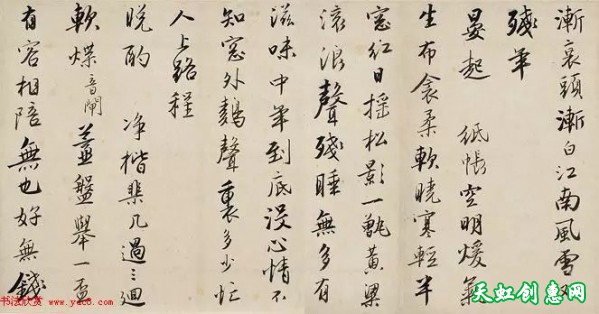 漸裹頭漸白江南風雪又
殘年
晏起 紙帳空明煖氣
生布衾柔軟曉寒輕半
窓紅日摇松影一甑黄粱
滚浪聲殘睡無多有
滋味中年到底没心情不
知窓外鷄聲裏多少忙
人上路程
晚酌 净揩棐几過三廻
軟煠音閘薑盤舉一盃
有客相陪無也好無錢
书法欣赏 www.yac8.com
天虹创惠网